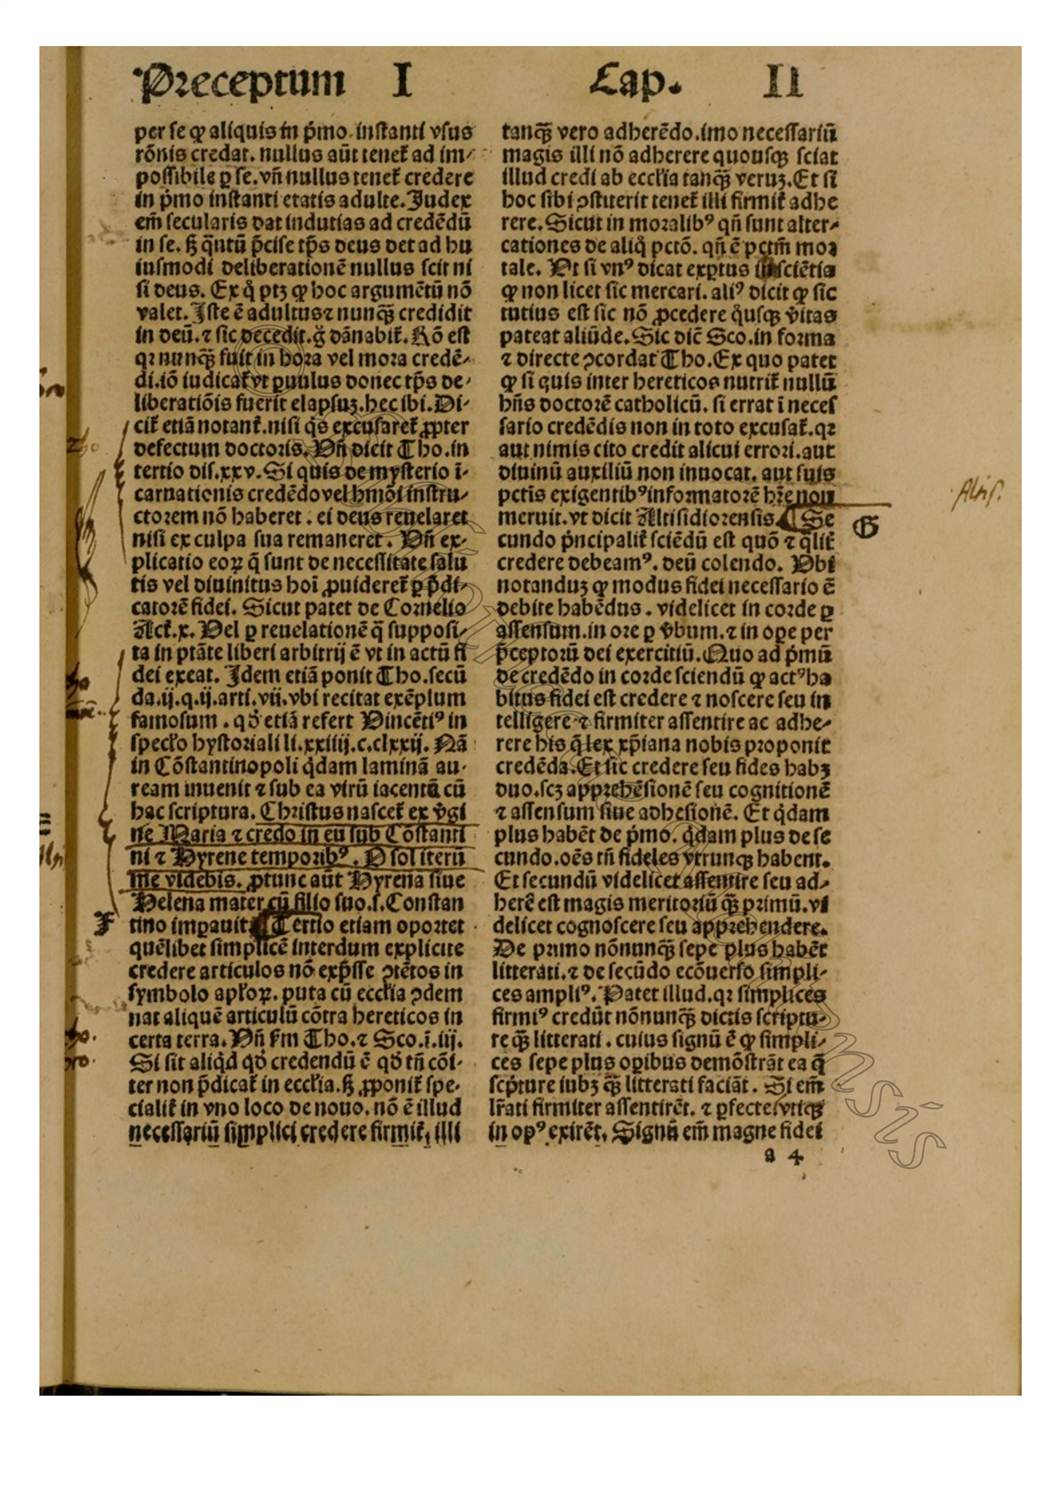 Preceptum I Cap. II
per se ꝙ aliquis in p̄mo instanti vsus
rōnis credat. nullus aūt tenet̄ ad im-
possibile ꝑ se. vn̄ nullus tenet̄ credere
in p̄mo instanti etatis adulte. Judex
em̄ secularis dat indutias ad credēdū
in se. ꝫ q̄ntū p̄cise tp̄s deus det ad hu
iusmodi deliberationē nullus scit ni
si deus. Ex q̊ ptꝫ ꝙ hoc argumētū nō
valet. Iste ē adultus ⁊ nunqꝫ̄ credidit
in deū. ⁊ sic decedit. g̊ dānabit̄. Rō est
qꝛ nunqꝫ̄ fuit in hora vel mora credē-
di. iō iudicat̄ vt ꝑuulus donec tp̄s de-
liberatiōis fuerit elapsuꝫ. hec ibi. Di-
cit̄ etiā notant̄. nisi q̊s excusaret̄ ꝓpter
defectum doctoris. Vn̄ dicit Tho. in
tertio dis. xxv. Si quis de mysterio ī-
carnationis credēdo vel hmōi instru-
ctorem nō haberet. ei deus reuelaret
nisi ex culpa sua remaneret. Vn̄ ex-
plicatio eoꝝ q̄ sunt de necessitate salu
tis vel diuinitus hoī ꝓuideret̄ ꝑ p̄di-
catorē fidei. Sicut patet de Cornelio
Act̄. x. Vel ꝑ reuelationē q̄ supposi-
ta in ptāte liberi arbitrij ē vt in actū fi
dei exeat. Idem etiā ponit Tho. secū
da. ij. q. ij. arti. vij. vbi recitat exēplum
famosum. qd̓ etiā refert Vincētiꝰ in
spec̄lo hystoriali li. xxiiij. c. clxxij. Nā
in Cōstantinopoli q̇dam laminā au-
ream inuenit ⁊ sub ea virū iacentē cū
hac scriptura. Christus nascet̄ ex v̓gi
ne Maria ⁊ credo in eū sub Cōstanti
ni ⁊ Hyrene temporibꝰ. O sol iterū
me videbis. ꝓtunc aūt Hyrena siue
Helena mater cū filio suo. s. Constan
F
tino imꝑauit. ¶ Tertio etiam oportet
quēlibet simplicē interdum explicite
credere articulos nō exp̄sse ꝯtētos in
symbolo apl̄oꝝ. puta cū eccl̄ia ꝯdem
nat aliquē articulū cōtra hereticos in
certa terra. Vn̄ fm̄ Tho. ⁊ Sco. ī. iij.
Si sit aliq̇d qd̓ credendū ē qd̓ tn̄ cōi-
ter non p̄dicat̄ in eccl̄ia. ꝫ ꝓponit̄ spe-
cialit̄ in vno loco de nouo. nō ē illud
necessariū simplici credere firmit̄, illi
tanqꝫ̄ vero adherēdo. imo necessariū
magis illi nō adherere quousqꝫ sciat
illud credi ab eccl̄ia tanqꝫ̄ veruꝫ. Et si
hoc sibi ꝯstiterit tenet̄ illi firmit̄ adhe
rere. Sicut in moralibꝰ qn̄ sunt alter-
cationes de aliq̊ pctō. qn̄ ē pctm̄ moꝛ
tale. Vt si vnꝰ dicat exꝑtus sciētia
ꝙ non licet sic mercari. aliꝰ dicit ꝙ sic
tutius est sic nō ꝓcedere q̊usqꝫ v̓itas
pateat aliūde. Sic dic̄ Sco. in forma
⁊ directe ꝯcordat Tho. Ex quo patet
ꝙ si quis inter hereticos nutrit̄ nullū
hn̄s doctorē catholicū. si errat ī neces
sario credēdis non in toto excusat̄. qꝛ
aut nimis cito credit alicui errori. aut
diuinū auxiliū non inuocat. aut suis
pctis exigentibꝰ informatorē hr̄e non
meruit. vt dicit Altisidiorensis. ¶ Se
G
cundo p̓ncipalit̄ sciēdū est quō ⁊ q̄lit̄
credere debeamꝰ. deū colendo. Vbi
notanduꝫ ꝙ modus fidei necessario ē
debite habēdus. videlicet in corde ꝑ
assensum. in ore ꝑ v̓bum. ⁊ in oꝑe per
p̄ceptoꝝ dei exercitiū. Quo ad p̓mū
de credēdo in corde sciendū ꝙ actꝰ ha
bitus fidei est credere ⁊ noscere seu in
telligere ⁊ firmiter assentire ac adhe-
rere his q̄ lex xp̄iana nobis proponit
credēda. Et sic credere seu fides habꝫ
duo. scꝫ apprehēsionē seu cognitionē
⁊ assensum siue adhesionē. Et q̇dam
plus habēt de p̓mo. q̇dam plus de se
cundo. oēs tn̄ fideles vtrunqꝫ habent.
Et secundū videlicet assentire seu ad-
herē est magis meritoriū qꝫ̄ primū. vi
delicet cognoscere seu apprehendere.
De primo nōnunqꝫ̄ sepe plus habēt
litterati. ⁊ de secūdo ecōuerso simpli-
ces ampliꝰ. Patet illud. qꝛ simplices
firmiꝰ credūt nōnunqꝫ̄ dictis scriptu-
re qꝫ̄ litterati. cuius signū ē ꝙ simpli-
ces sepe plus oꝑibus demōstrāt ea q̄
scp̓ture iubꝫ qꝫ̄ litterati faciāt. Si em̄
lr̄ati firmiter assentirēt. ⁊ ꝑfecte vtiqꝫ
in opꝰ exirēt. Signū em̄ magne fidei
a 4